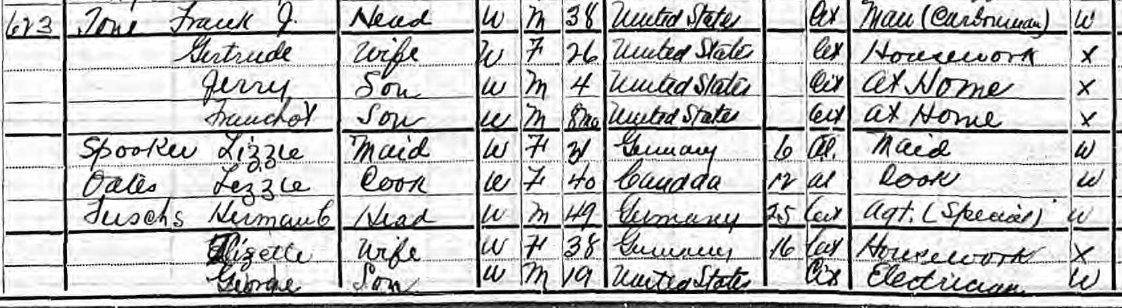 623 Tone Frank J. Head W M 38 United States Cit Man (Carborundum) W
Gertrude Wife W F 26 United States Cit Housework x
Jerry Son W M 4 United States Cit At Home x
Franchot Son W M 8mo United States Cit At Home x
Spooker Lizzie Maid W F 21 Germany 6 Al. Maid W
Oates Lizzie Cook W F 40 Canada 12 al Cook W
Fuschs Head W M 49 Germany 25 Cit Agt. (Special) W
Lizette Wife W F 38 Germany 16 Cit Housework x
George Son W M 19 United States Cit Electrician W